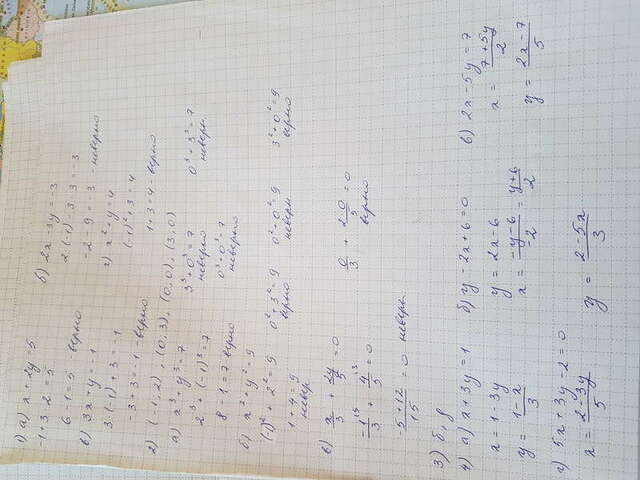 1) а) x + 2y = 5
-1 + 3·2 = 5
6 - 1 = 5 - верно
в) 3x + y = -1
3·(-1) + 3 = -1
-3 + 3 = -1 - верно
б) 2x - 3y = -3
2·(-1) - 3·3 = -3
-2 - 9 = -3 - неверно
г) x² + y = 4
(-1)² + 3 = 4
1 + 3 = 4 - верно
2) (-1, 2), (0, 3), (0, 0), (3, 0)
а) x³ + y³ = 7
2³ + (-1)³ = 7
8 - 1 = 7 верно
3³ + 0³ = 7
неверно
0³ + 0³ = 7
неверно
0³ + 3³ = 7
неверн.
б) x² + y² = 9
(-1)² + 2² = 9
1 + 4 = 9
невер.
0² + 3² = 9
верно
0² + 0² = 9
неверн.
3² + 0² = 9
верно
в) x/3 + 2y/5 = 0
-1/3 + 4/5 = 0
-5 + 12/15 = 0 неверн.
0/3 + 2·0/5 = 0
верно
3) б,
4) а) x + 3y = 1
x = 1 - 3y
y = 1 - x/3
б) y - 2x + 6 = 0
y = 2x - 6
x = -y - 6/-2 = y + 6/2
в) 2x - 5y = 7
x = 7 + 5y/2
y = 2x - 7/5
г) 5x + 3y - 2 = 0
x = 2 - 3y/5
y = 2 - 5x/3